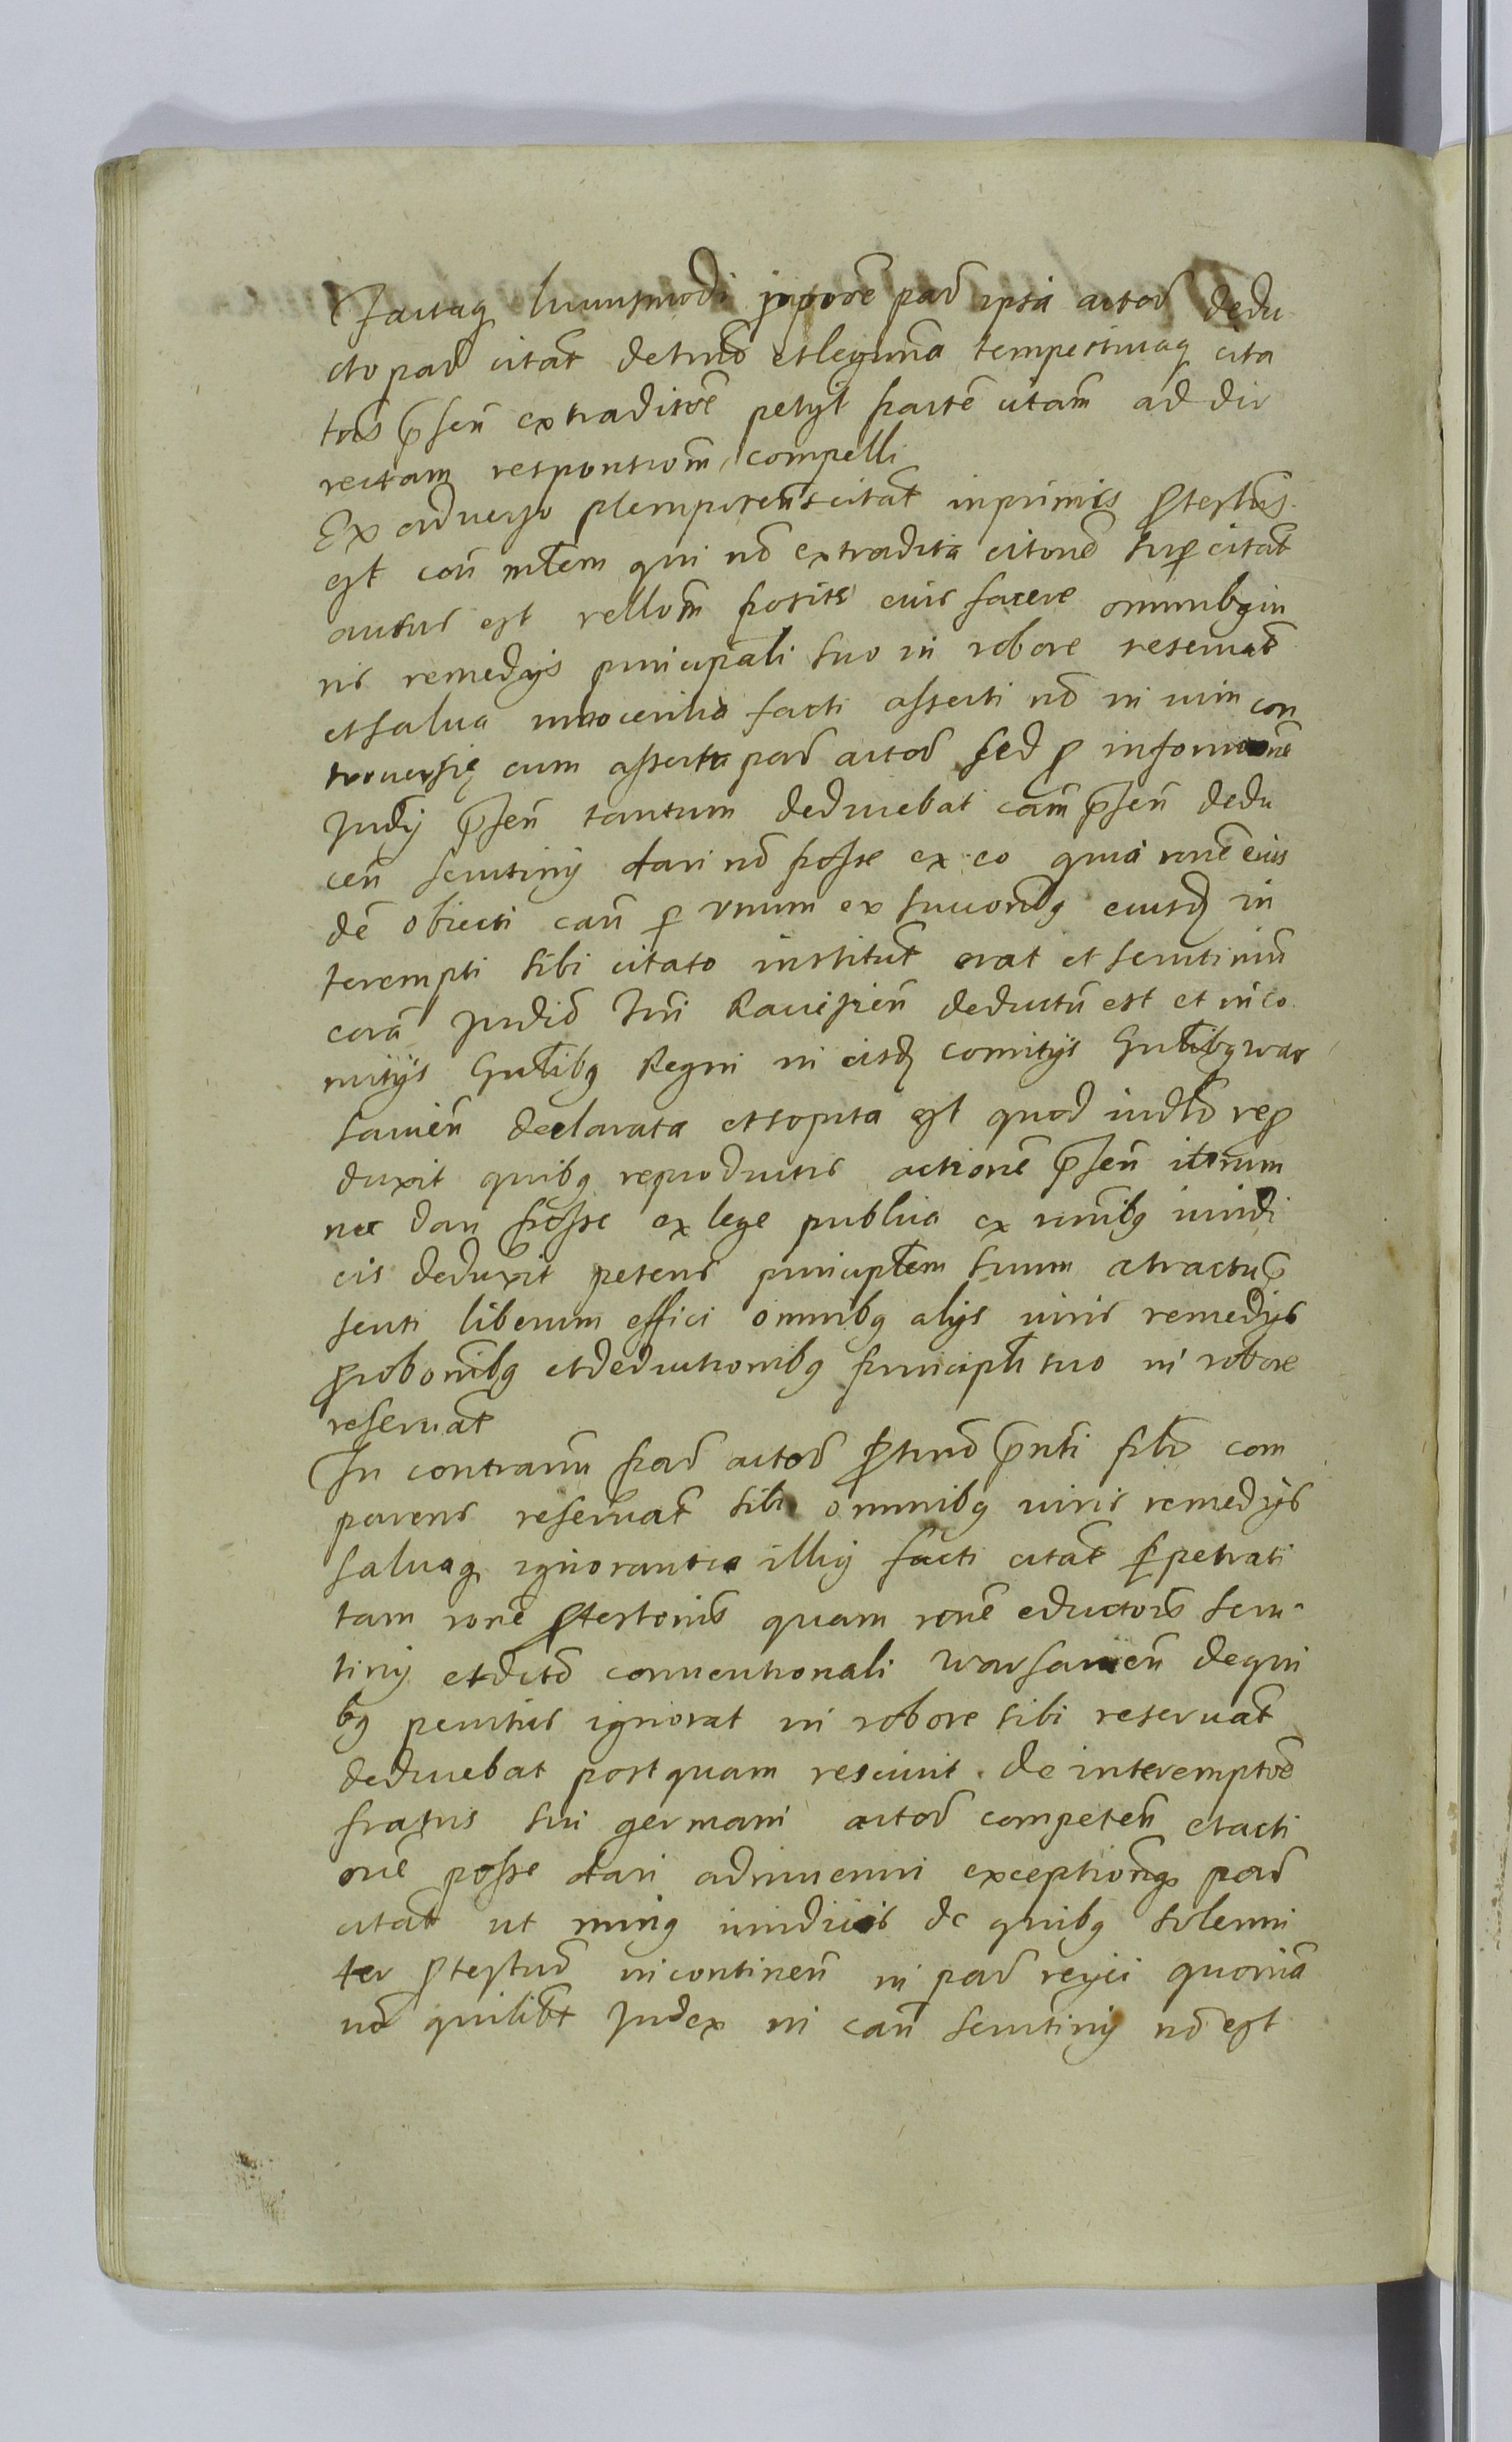 Factaq huiusmodi ꝓpoōe par̃ ipsa actor̃ dedu
cto par̃ citat̃ detinõ et legittima tempestiuaq cita
tõis p̃sen̄ extraditōe petyt partē citam̃ ad dir
rectam responsiom̃ compelli
Ex aduerso plenipoten̄s citat̃ inprimis ꝓtestus
est con̄ mĩtem qui nõ extradita citone sup citat̃
autus est rellom̃ positis eius facere omnibq iu
ris remedijs principali suo in robore reseruat̃
et salua innocentia facti asserti nõ in uim con
trouersię cum asserta par̃ actor̃ sed ꝓ informone
Judy p̃sen̄ tantum deducebat cam̃ p̃sen̄ dedu
cen̄ scrutiny dari nõ posse ex eo quia rone eius
dē obiecti cau̅ ꝑ vnum ex succoribq eiusd in
terempti sibi citato institut̃ erat et scrutiniũ
corā Judio Trñi Rauisien̄ deductũ est et in co
mitijs Gnl̃ibq Regni in eisd comitijs Gnl̃ibq war
sauien̄ declarata et sopita est quod iudtõ reꝓ
duxit quibq reproductis actione p̃sen̄ iterum
nec dari posse ex lege publica ex ronibq iuridi
cis deduxit petens principlem suum at ractu p̃
senti liberum effici omnibq alijs iuris remedijs
ꝓbonibq et deductionibq principli suo in robore
reseruat̃
In contrariũ par̃ actor̃ ꝓtinõ p̃nti plr̃ com
parens reseruat̃ sibi omnibq iuris remedijs
saluaq ignorantia illiq facti citat̃ ꝑpetrati
tam rone ꝓtestonis quam rone eductois scru
tiny et dcto conuentionali warsauien̄ de qui
bq penitus ignorat in robore sibi reseruat̃
deducebat postquam resciuit de interemptōe
fratris sui germani actor̃ competen̄ et acti
one posse dari adinueniri exceptionq par̃
citat̃ ut minq iuridicis de quibq solenni
ter ꝓtestur̃ incontinen̄ in par̃ reyci quoniã
nõ quilibt Judex in cau̅ scrutiny nõ est